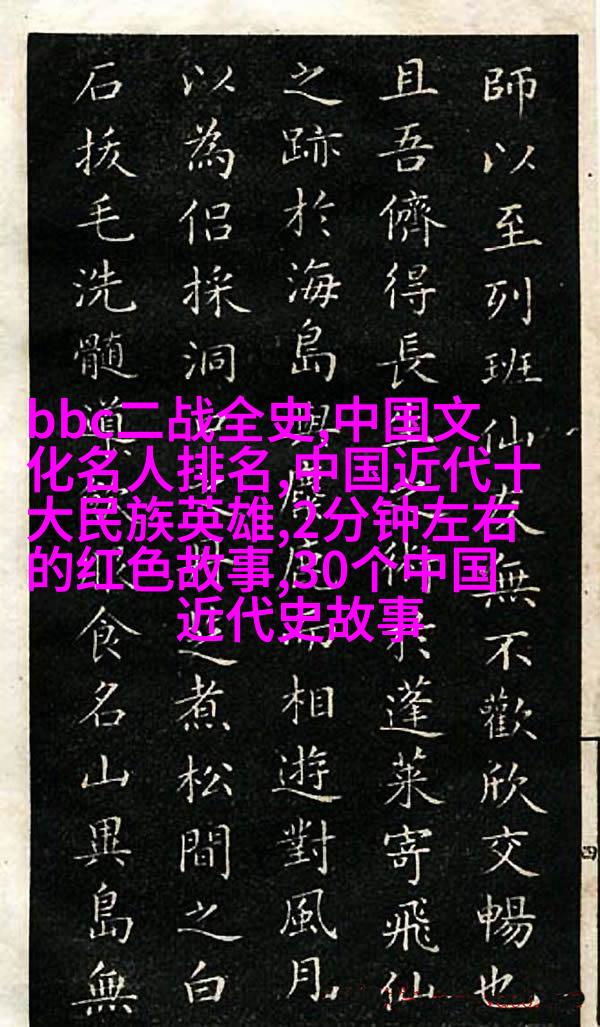 bbc二战全史,中国文
化名人排名,中国近代十
大民族英雄,2分钟左右
的红色故事,30个中国
近代史故事
師以至列班仙友無不歡欣交暢也
且吾儕得長生術於蓬萊寄飛仙
之跡於海島與而相遊對風月
以為侶採洞煮松間之白
石拔毛洗髓導食名山異島無